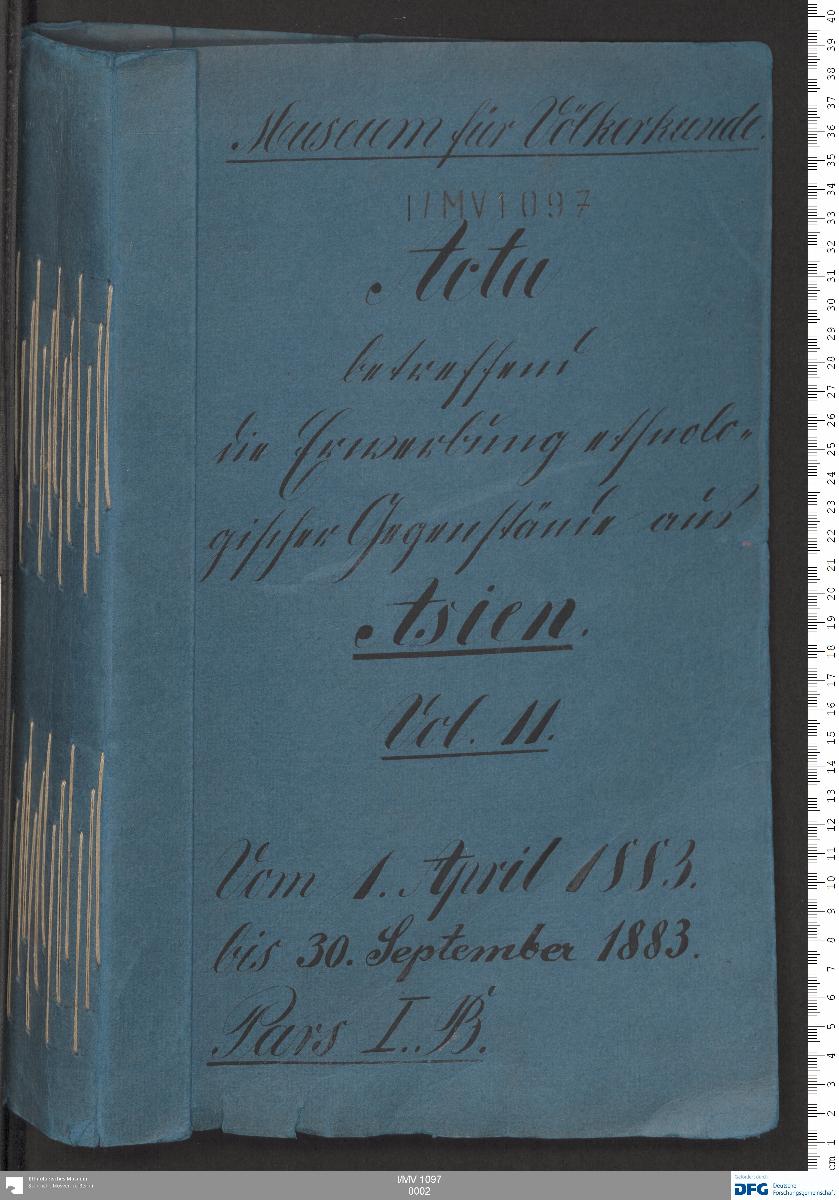 Museum für Völkerkunde.
I/MV 1097
Acta
betreffend
die Erwerbung ethnolo-
gischer Gegenstände aus
Asien.
Vol. 11.
Vom 1. April 1883.
bis 30. September 1883.
Pars I. B.
I/MV 1097
0002
Ethnologisches Museum
Gefördert durch
DFG Deutsche
Forschungsgemeinschaft
cm 1 2 3 4 5 6 7 8 9 10 11 12 13 14 15 16 17 18 19 20 21 22 23 24 25 26 27 28 29 30 31 32 33 34 35 36 37 38 39 40